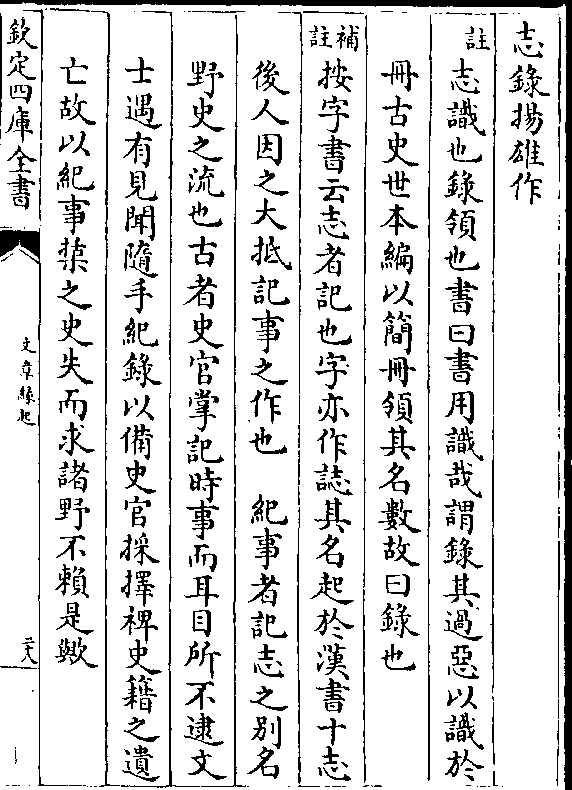 志錄揚雄作
註志識也錄領也書曰書用識哉謂錄其過惡以識於
冊古史世本編以簡冊領其名數故曰錄也
補註按字書云志者記也字亦作誌其名起於漢書十志
後人因之大抵記事之作也　紀事者記志之別名
野史之流也古者史官掌記時事而耳目所不逮文
士遇有見聞隨手紀錄以備史官採擇裨史籍之遺
亡故以紀事槩之史失而求諸野不賴是歟
欽定四庫全書
文章緣起
二八